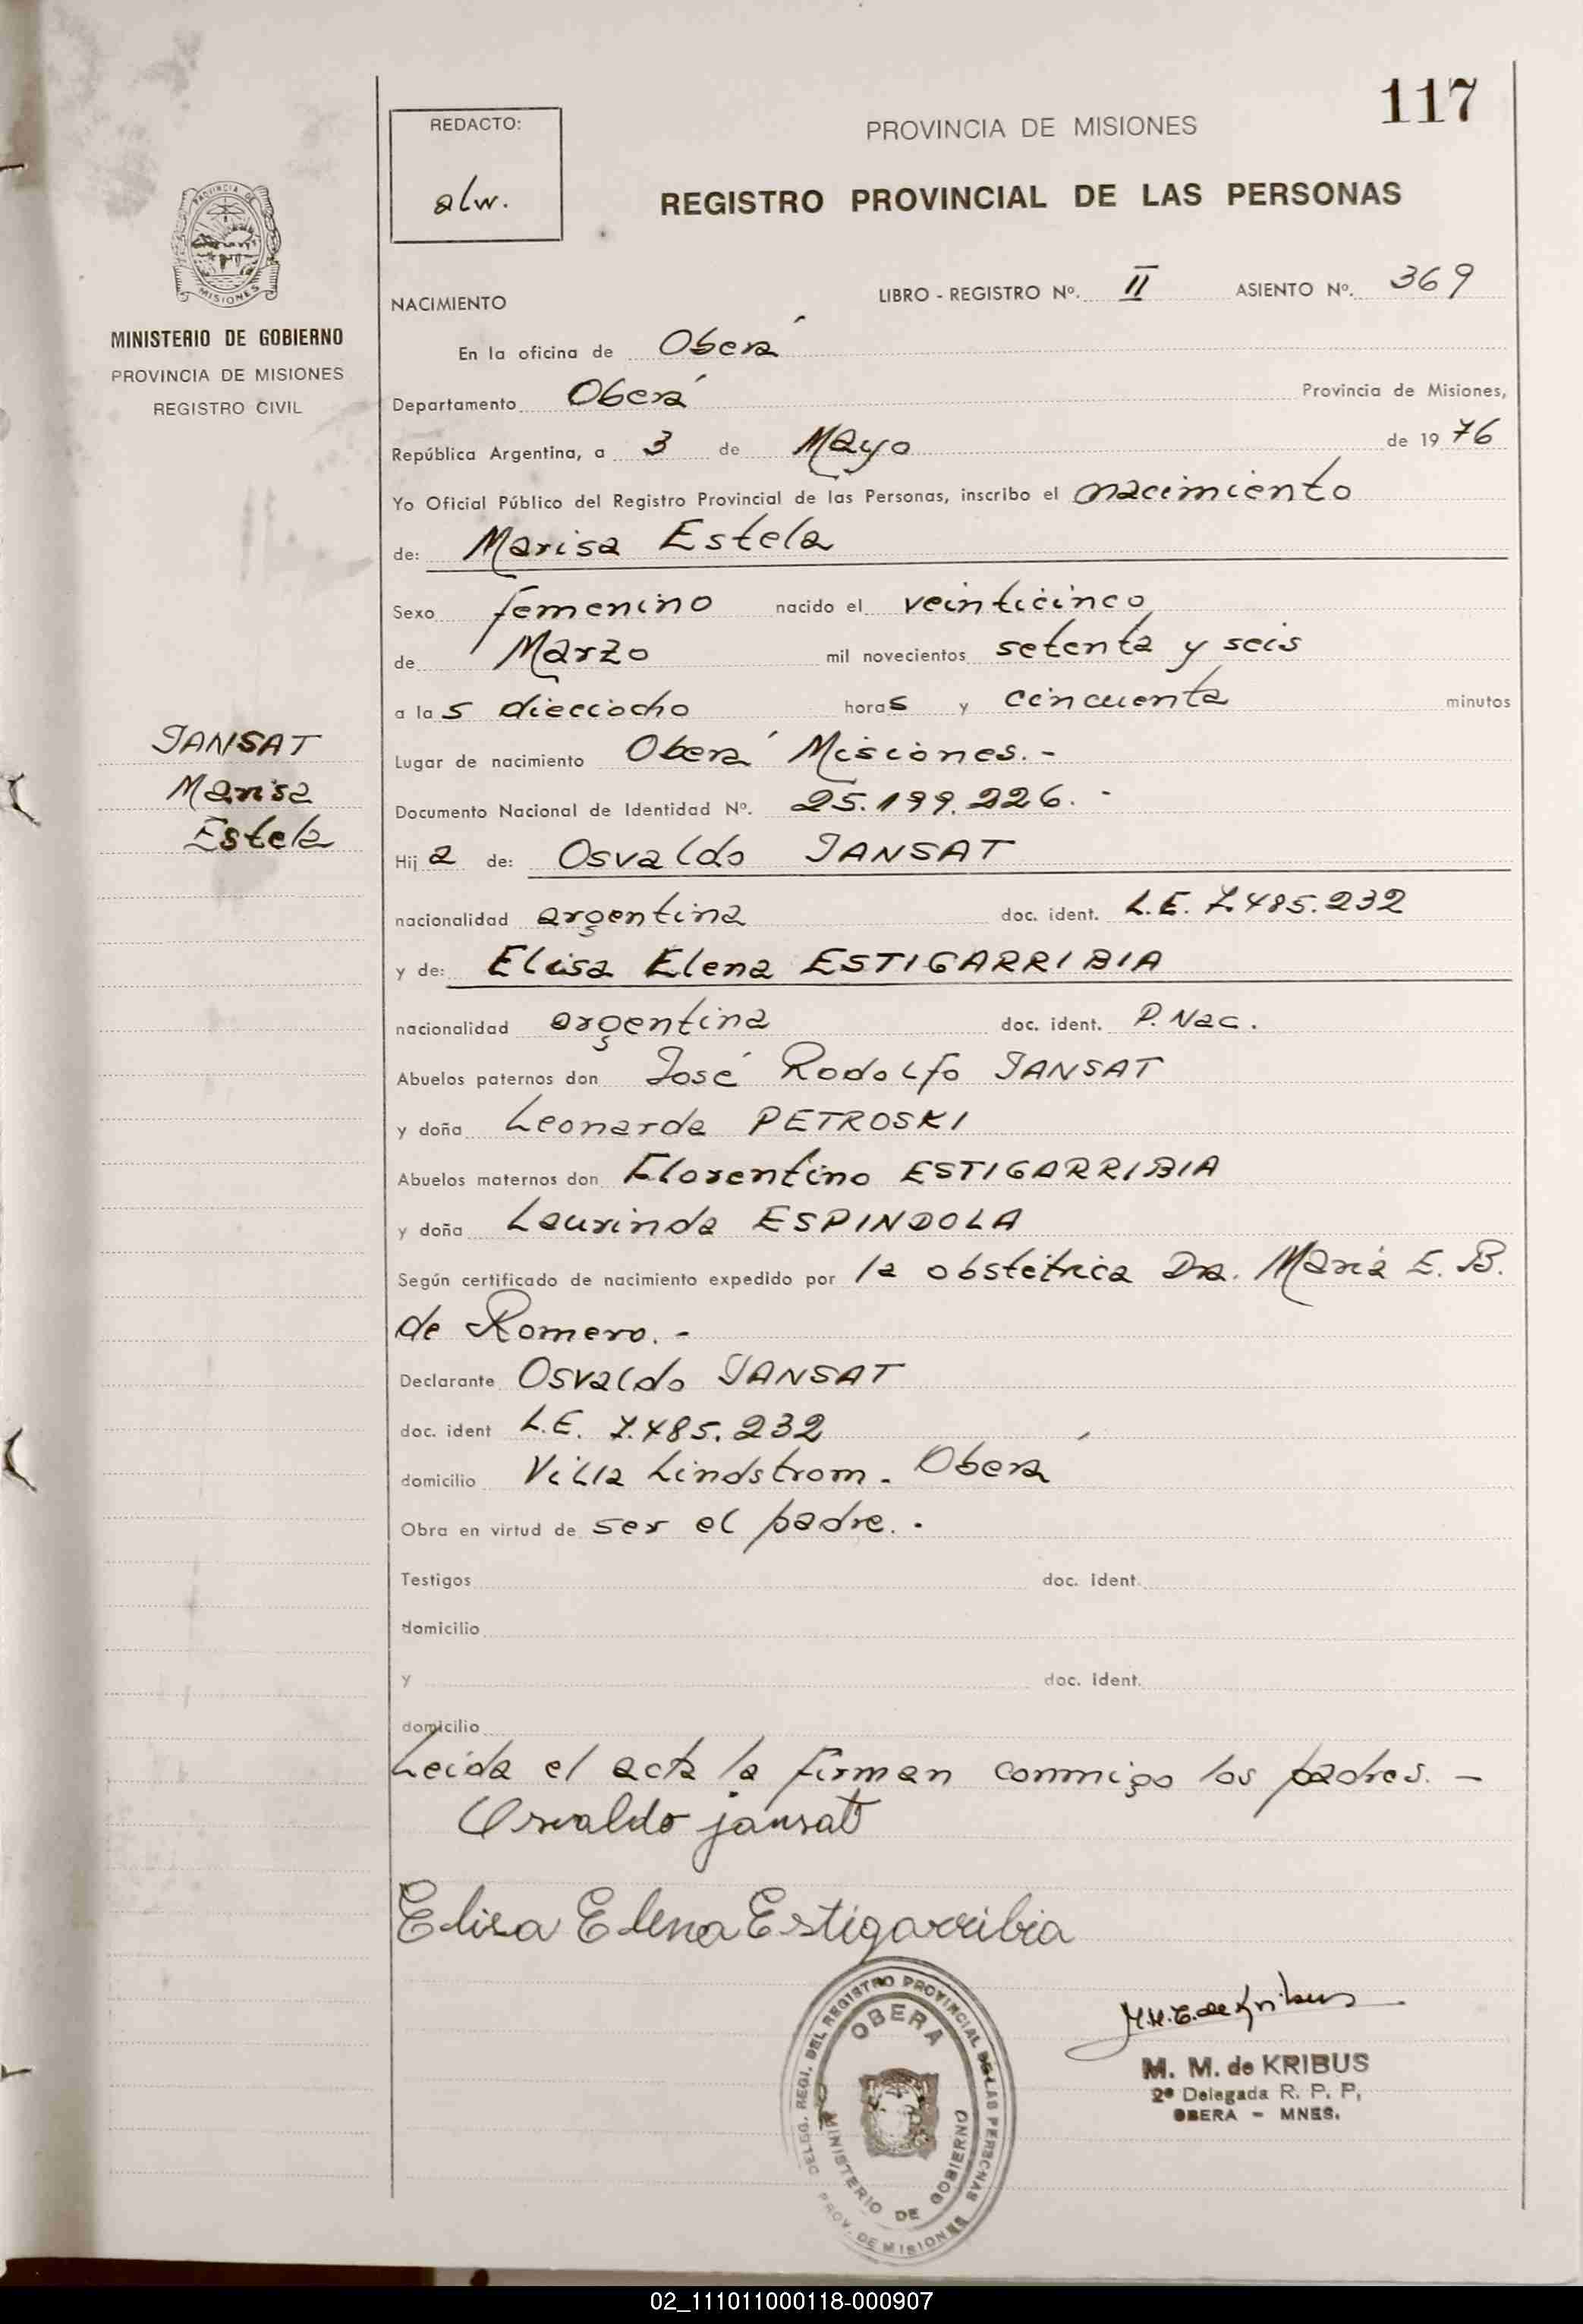 117
REDACTO:
alw.
PROVINCIA DE MISIONES
REGISTRO PROVINCIAL DE LAS PERSONAS
PROVINCIA DE
MISIONES
MINISTERIO DE GOBIERNO
PROVINCIA DE MISIONES
REGISTRO CIVIL
NACIMIENTO LIBRO - REGISTRO Nº. II ASIENTO Nº. 369
En la oficina de Oberá
Departamento Oberá Provincia de Misiones,
República Argentina, a 3 de Mayo de 1976
Yo Oficial Público del Registro Provincial de las Personas, inscribo el nacimiento
de: Marisa Estela
Sexo femenino nacido el veinticinco
de Marzo mil novecientos setenta y seis
a las dieciocho horas y cincuenta minutos
JANSAT
Marisa
Estela
Lugar de nacimiento Oberá Misiones. -
Documento Nacional de Identidad Nº. 25.199.226. -
Hija de: Osvaldo JANSAT
nacionalidad argentina doc. ident. L.E. 7.485.232
y de: Elisa Elena ESTIGARRIBIA
nacionalidad argentina doc. ident. P. Nac.
Abuelos paternos don José Rodolfo JANSAT
y doña Leonarda PETROSKI
Abuelos maternos don Florentino ESTIGARRIBIA
y doña Laurinda ESPINDOLA
Según certificado de nacimiento expedido por la obstétrica Dra. María E. B.
de Romero. -
Declarante Osvaldo JANSAT
doc. ident L.E. 7.485.232
domicilio Villa Lindstrom. Oberá
Obra en virtud de ser el padre. .
Testigos doc. ident.
domicilio
y doc. ident.
domicilio
Leída el acta la firman conmigo los padres. -
Osvaldo jansat
Elisa Elena Estigarribia
DELEG. REGI. DEL REGISTRO PROVINCIAL DE LAS PERSONAS
OBERA
MINISTERIO DE GOBIERNO
PROV. DE MISIONES
M. M. de KRIBUS
2ª Delegada R. P. P.
OBERA - MNES.
02_111011000118-000907